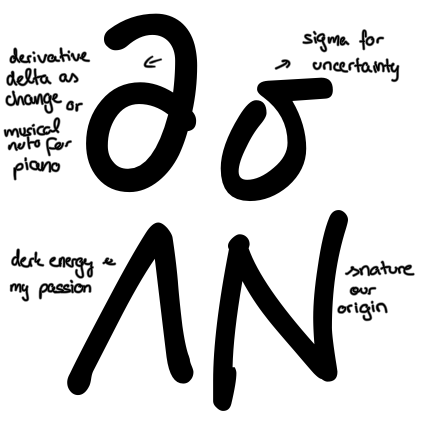 ∂ σ
derivative
delta as
change or
musical
note for
piano
sigma for
uncertainty
Λ N
dark energy
my passion
nature
our
origin